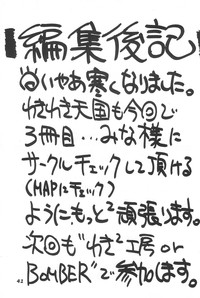 編集後記
いやあ寒くなりました。
わきわき天国も今回で
3冊目…みな様に
サークルチェックして頂ける
(MAPにチェック)
ようにもっと²頑張ります。
次回も"わき²工房 or
BOMBER"で参加します。
42